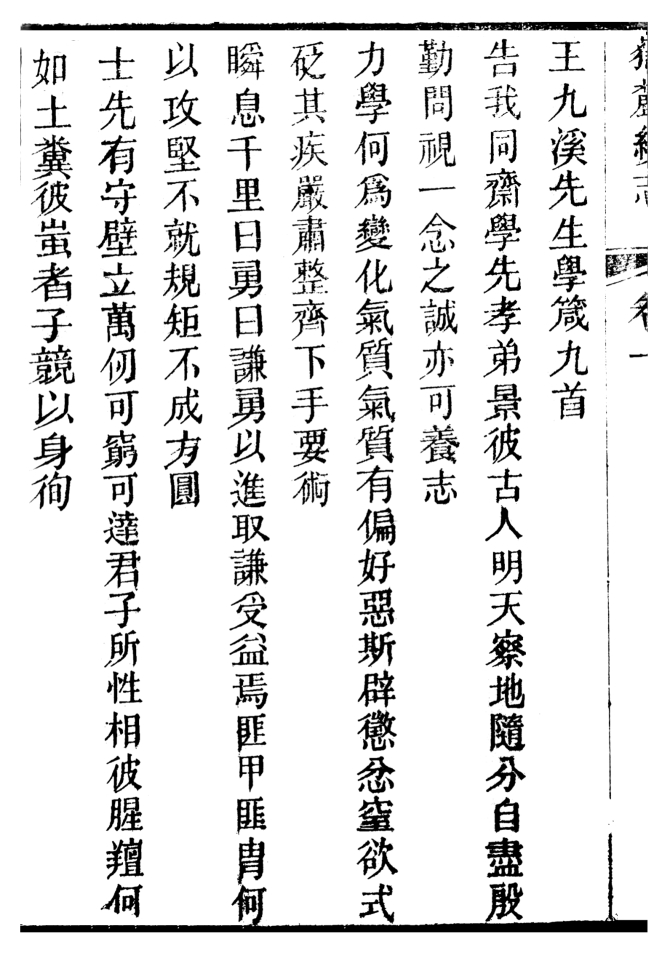 王九溪先生學箴九首
告我同齋學先孝弟景彼古人明天察地隨分自盡殷
勤問視一念之誠亦可養志
力學何爲變化氣質氣質有偏好惡斯辟懲忿窒欲式
砭其疾嚴肅整齊下手要術
瞬息千里曰勇曰謙勇以進取謙受益焉匪甲匪冑何
以攻堅不就規矩不成方圓
士先有守壁立萬仞可窮可達君子所性相彼腥羶何
如土糞彼蚩者子競以身徇